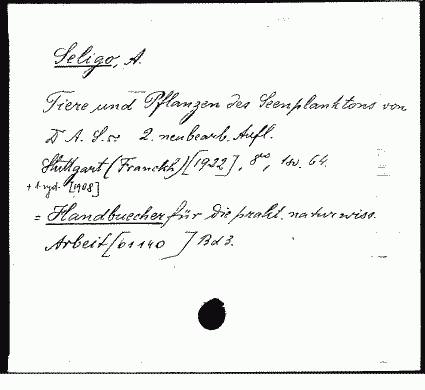 Seligo, A.
Tiere und Pflanzen des Seenplanktons von
D A. S. 2. neubearb. Aufl.
Stuttgart (Franckh) [1922], 8vo, 64.
[1908]
= Handbuecher für die prakt. naturwiss.
Arbeit [61140 ] Bd 3.